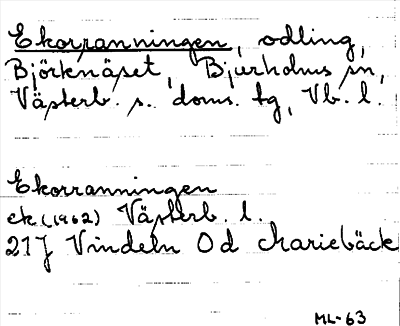 Ekorranningen, odling,
Björknäset, Bjurholms sn,
Västerb. s. doms. tg, Vb. l.
Ekorranningen
ek (1962) Västerb. l.
21J Vindeln 0 d Mariebäck
ML-63